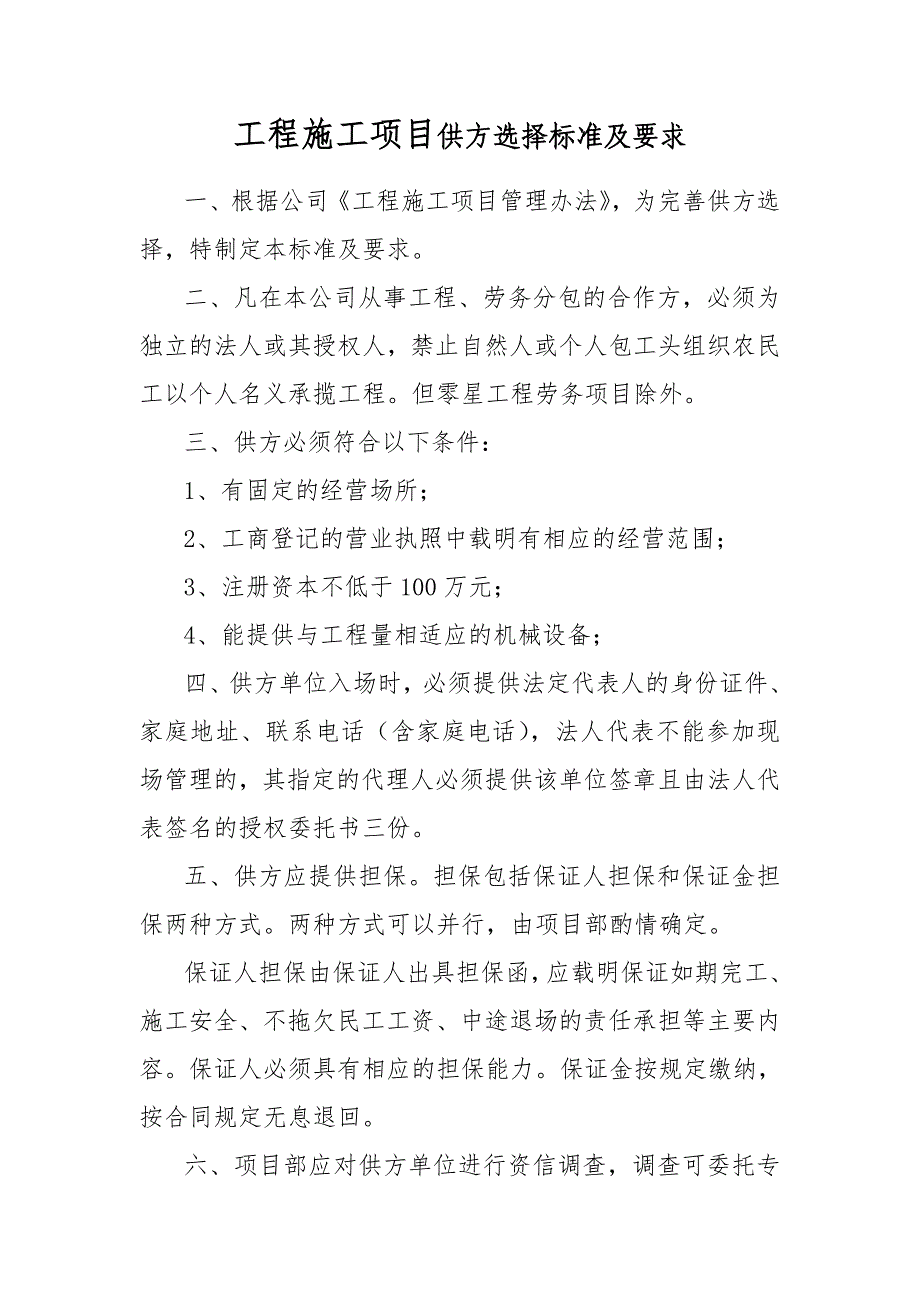 工程施工项目供方选择标准及要求
一、根据公司《工程施工项目管理办法》，为完善供方选
择，特制定本标准及要求。
二、凡在本公司从事工程、劳务分包的合作方，必须为
独立的法人或其授权人，禁止自然人或个人包工头组织农民
工以个人名义承揽工程。但零星工程劳务项目除外。
三、供方必须符合以下条件：
1、有固定的经营场所；
2、工商登记的营业执照中载明有相应的经营范围；
3、注册资本不低于 100 万元；
4、能提供与工程量相适应的机械设备；
四、供方单位入场时，必须提供法定代表人的身份证件、
家庭地址、联系电话（含家庭电话），法人代表不能参加现
场管理的，其指定的代理人必须提供该单位签章且由法人代
表签名的授权委托书三份。
五、供方应提供担保。担保包括保证人担保和保证金担
保两种方式。两种方式可以并行，由项目部酌情确定。
保证人担保由保证人出具担保函，应载明保证如期完工、
施工安全、不拖欠民工工资、中途退场的责任承担等主要内
容。保证人必须具有相应的担保能力。保证金按规定缴纳，
按合同规定无息退回。
六、项目部应对供方单位进行资信调查，调查可委托专